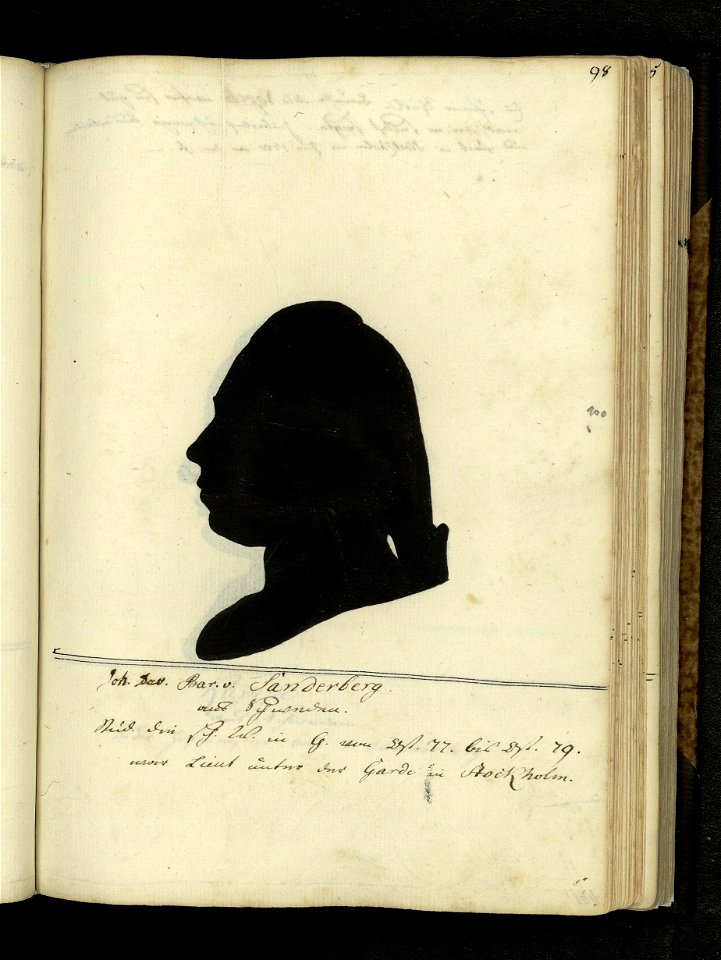 98
5
100
Joh. Dav. Bar. v. Sanderberg.
aus Schweden.
Stud. die sch. W. in G. von Ost. 77. bis Ost. 79.
war Lieut unter der Garde in Stockholm.